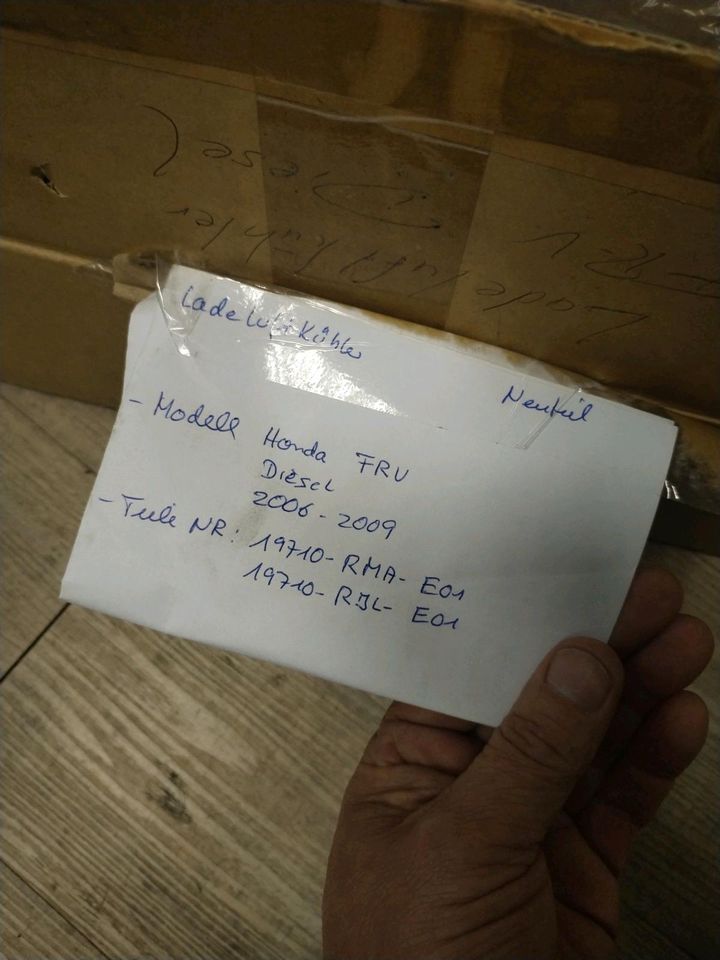 Diesel
Ladeluftkühler
Ladeluftkühler
Neuteil
- Modell Honda FRV
Diesel
2006 - 2009
- Teile NR: 19710- RMA- E01
19710- RJL- E01